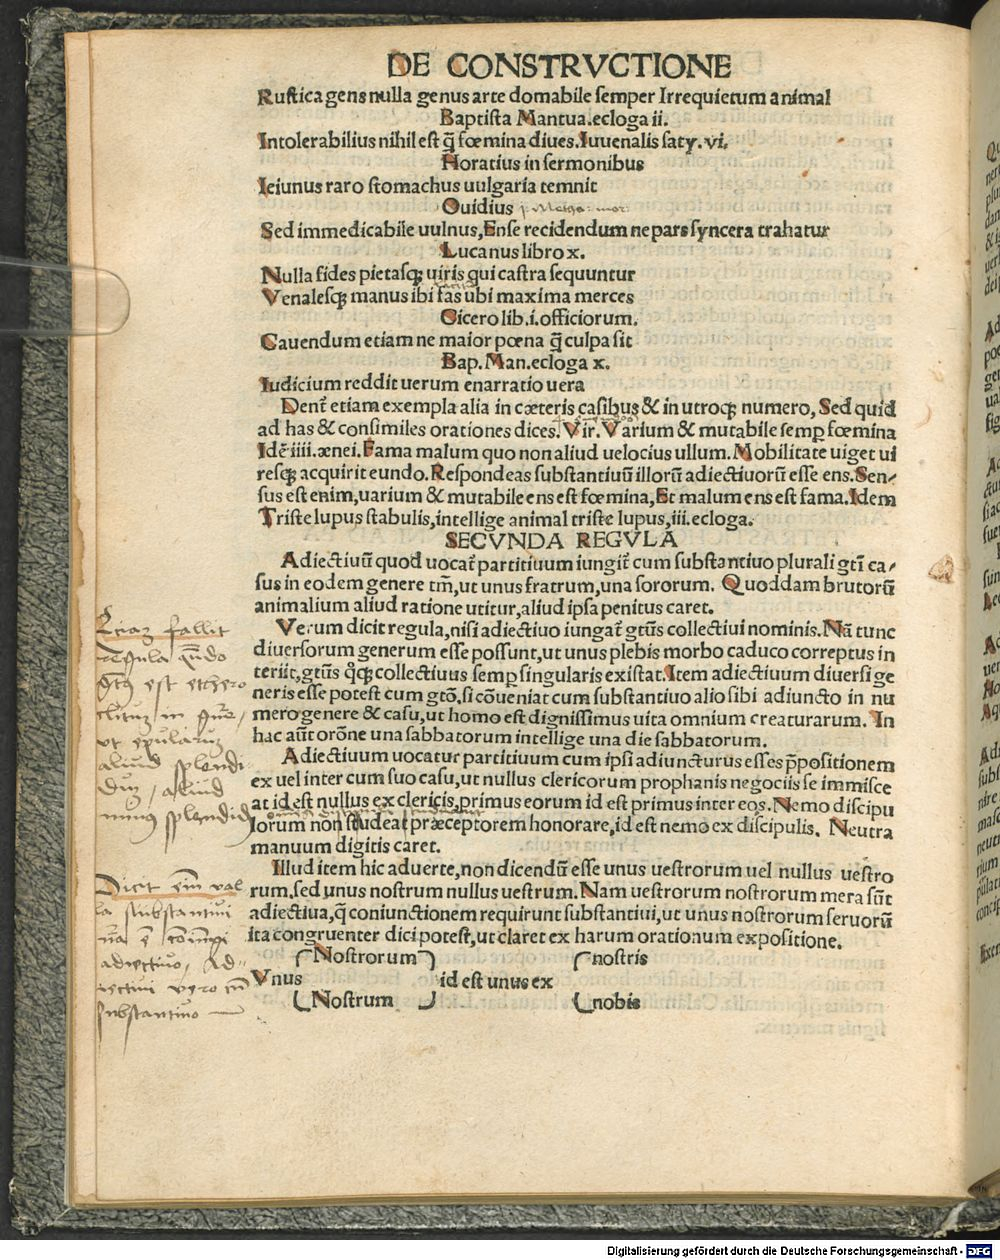 DE CONSTRVCTIONE
Rustica gens nulla genus arte domabile semper Irrequietum animal
Baptista Mantua.ecloga ii.
Intolerabilius nihil est q̃ fœmina diues.Iuuenalis saty.vi.
Horatius in sermonibus
Ieiunus raro stomachus uulgaria temnit
Ouidius
Sed immedicabile uulnus,Ense recidendum ne pars syncera trahatur
Lucanus libro x.
Nulla fides pietasq; uiris qui castra sequuntur
Venalesq; manus ibi fas ubi maxima merces
Cicero lib.i.officiorum.
Cauendum etiam ne maior pœna q̃ culpa sit
Bap.Man.ecloga x.
Iudicium reddit uerum enarratio uera
Dent̃ etiam exempla alia in cæteris casibus & in utroq; numero, Sed quid
ad has & consimiles orationes dices.Vir.Varium & mutabile semp̱ fœmina
Idẽ iiii.ænei.Fama malum quo non aliud uelocius ullum.Mobilitate uiget ui
resq; acquirit eundo.Respondeas substantiuũ illorũ adiectiuorũ esse ens.Sen-
sus est enim,uarium & mutabile ens est fœmina,Et malum ens est fama.Idem
Triste lupus stabulis,intellige animal triste lupus,iii.ecloga.
SECVNDA REGVLA
Adiectiuũ quod uocat̃ partitiuum iungit̃ cum substantiuo plurali gtĩ ca-
sus in eodem genere tm̃,ut unus fratrum,una sororum. Quoddam brutorũ
animalium aliud ratione utitur,aliud ipsa penitus caret.
Verum dicit regula,nisi adiectiuo iungat̃ gtũs collectiui nominis.Nã tunc
diuersorum generum esse possunt,ut unus plebis morbo caduco correptus in
teriit,gtũs q̃q; collectiuus semp̱ singularis existat.Item adiectiuum diuersi ge
neris esse potest cum gtõ,si cõueniat cum substantiuo alio sibi adiuncto in nu
mero genere & casu,ut homo est dignissimus uita omnium creaturarum. In
hac aũt orõne una sabbatorum intellige una die sabbatorum.
Adiectiuum uocatur partitiuum cum ipsi adiuncturus esses p̃positionem
ex uel inter cum suo casu,ut nullus clericorum prophanis negociis se immisce
at id est nullus ex clericis,primus eorum id est primus inter eos. Nemo discipu
lorum non studeat præceptorem honorare,id est nemo ex discipulis. Neutra
manuum digitis caret.
Illud item hic aduerte,non dicendũ esse unus uestrorum uel nullus uestro
rum,sed unus nostrum nullus uestrum.Nam uestrorum nostrorum mera sũt
adiectiua,q̃ coniunctionem requirunt substantiui,ut unus nostrorum seruorũ
ita congruenter dici potest,ut claret ex harum orationum expositione.
Nostrorum nostris
Vnus id est unus ex
Nostrum nobis
fallit
regula
est
in
ut epularum
aliud splendi
dum, aliud
minus splendid
Dicit
substantiui
adiectiuo, Ad-
iectiui vero
substantiuo
Digitalisierung gefördert durch die Deutsche Forschungsgemeinschaft - DFG